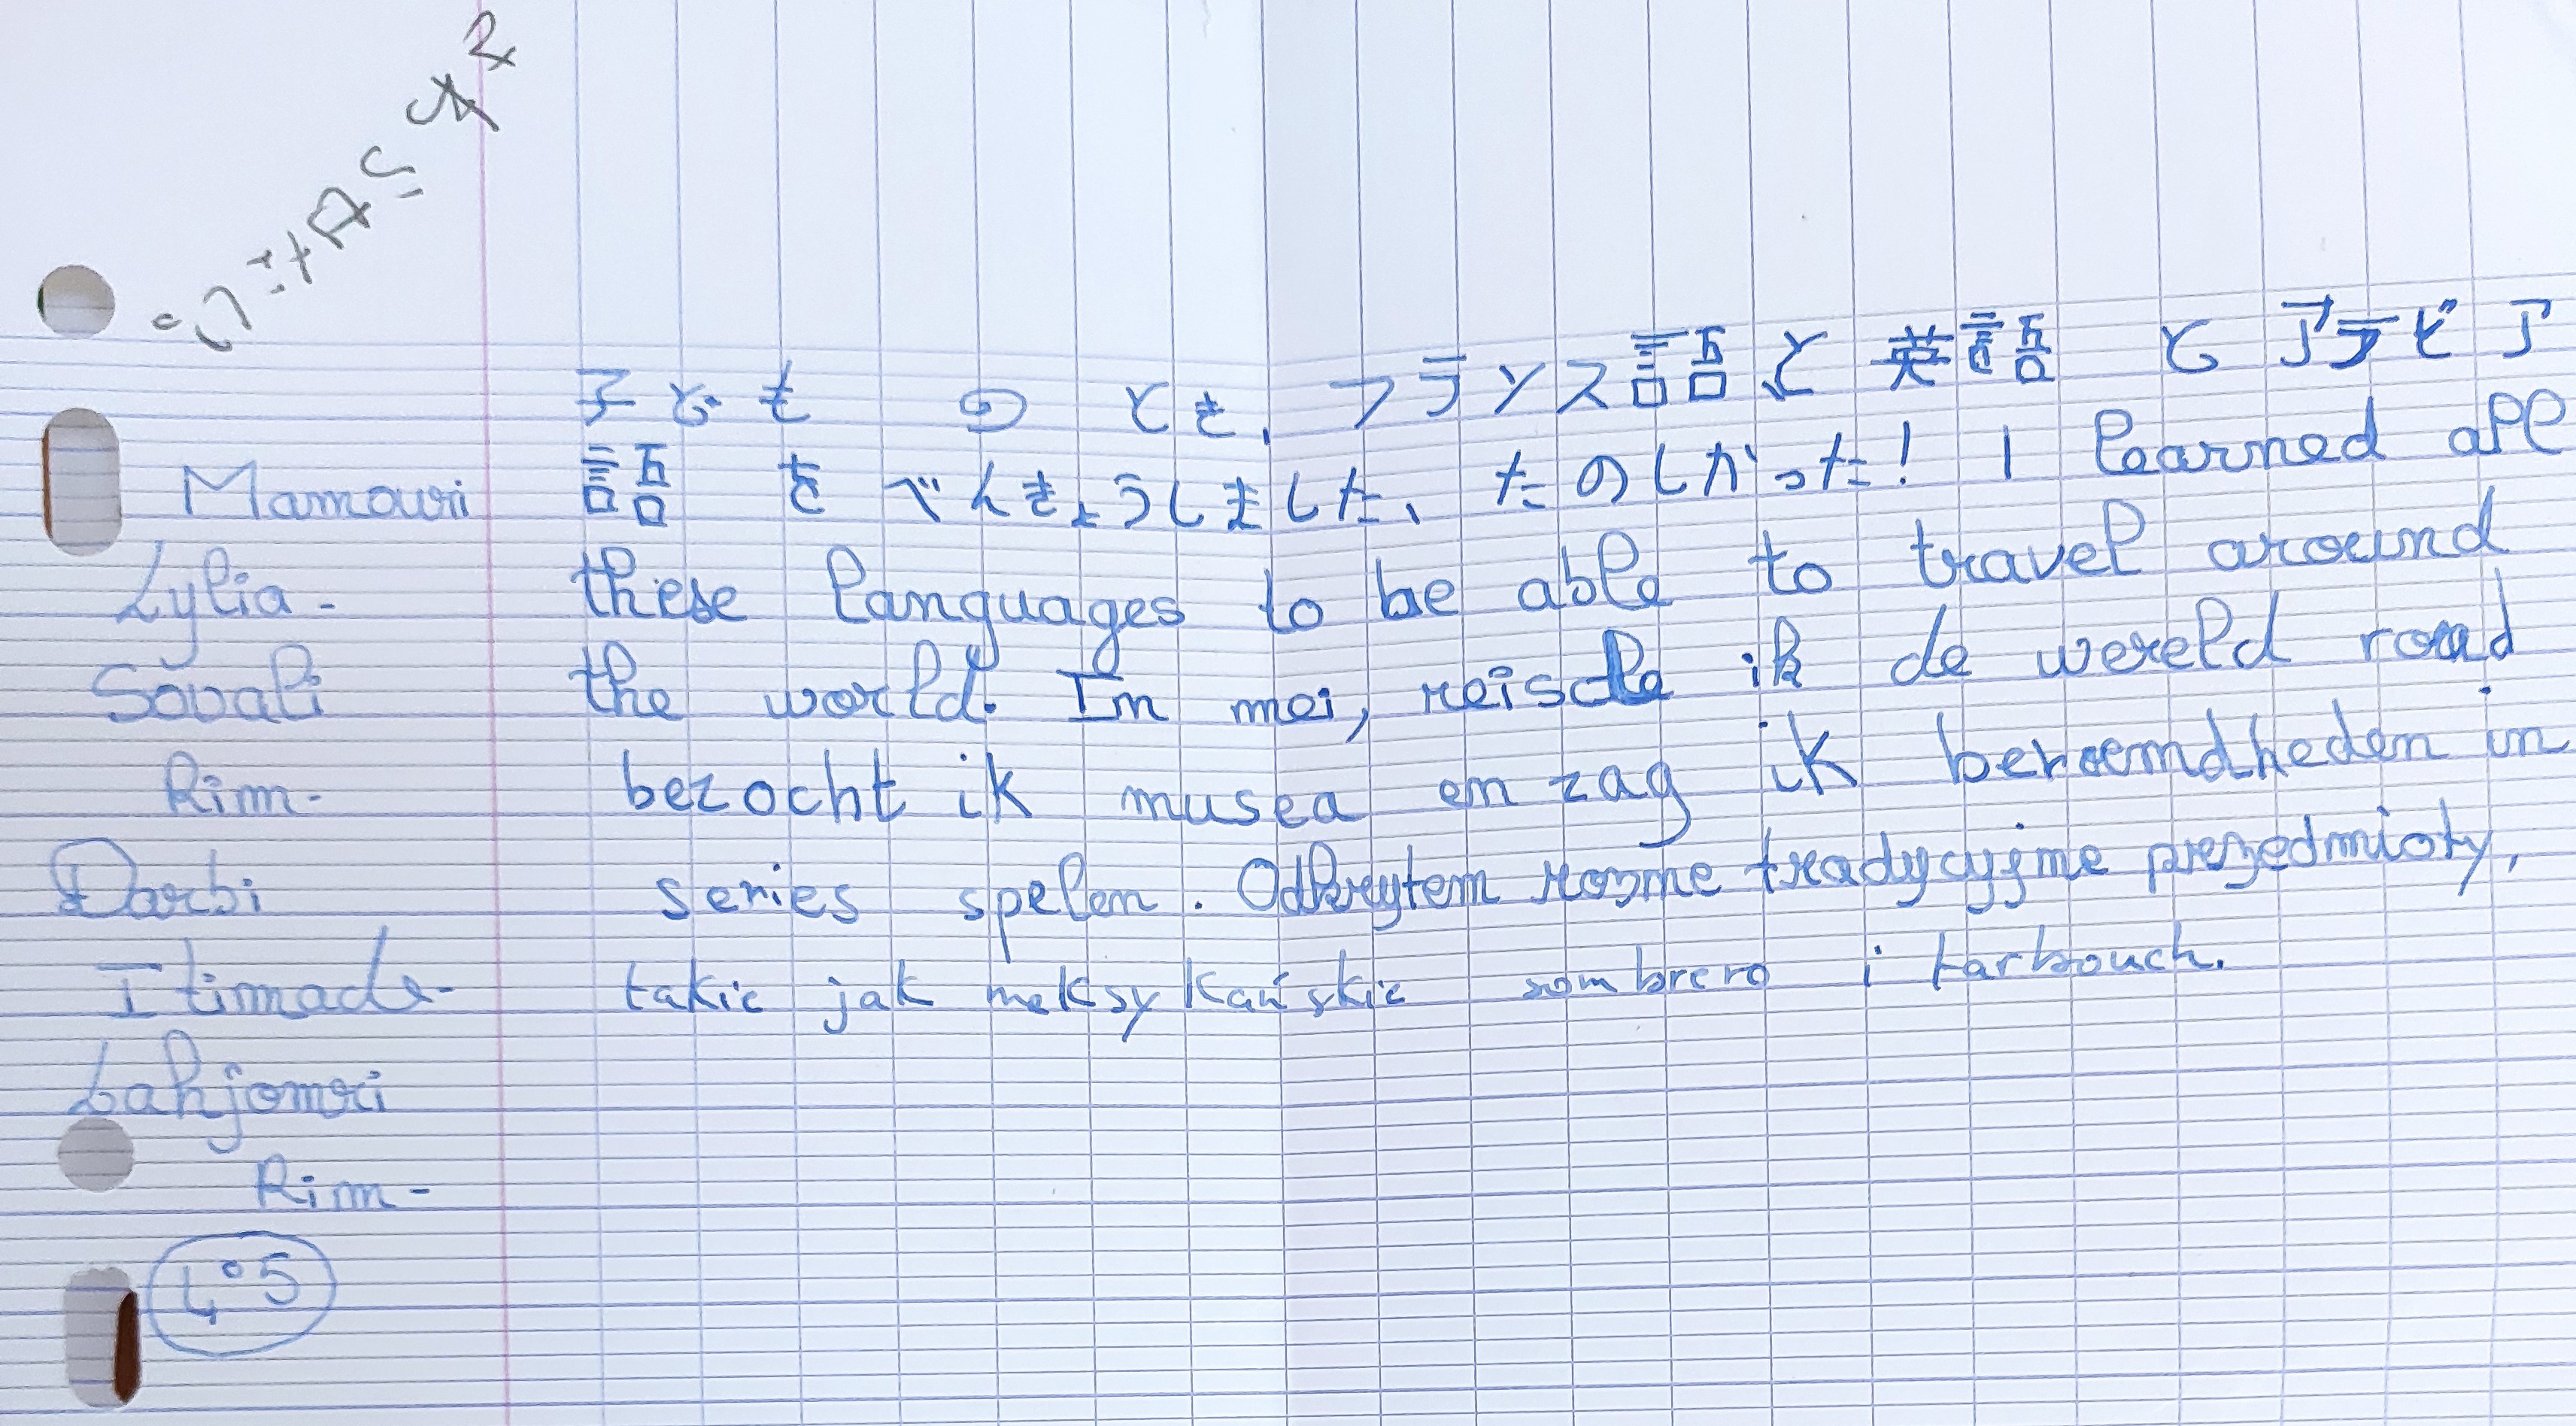 子どものとき、フランス語と英語とアラビア
語をべんきょうしました、たのしかった! I learned all
these languages to be able to travel around
the world. In mei, reisde ik de wereld rond
bezocht ik musea en zag ik beroemdheden in
series spelen. Odkrytem rozne tradycyjne przedmioty,
takie jak meksykańskie sombrero i tarbouch.
Mamouri
Lylia-
Souali
Rim-
Darbi
Itimade-
Lahjomri
Rim-
4°5